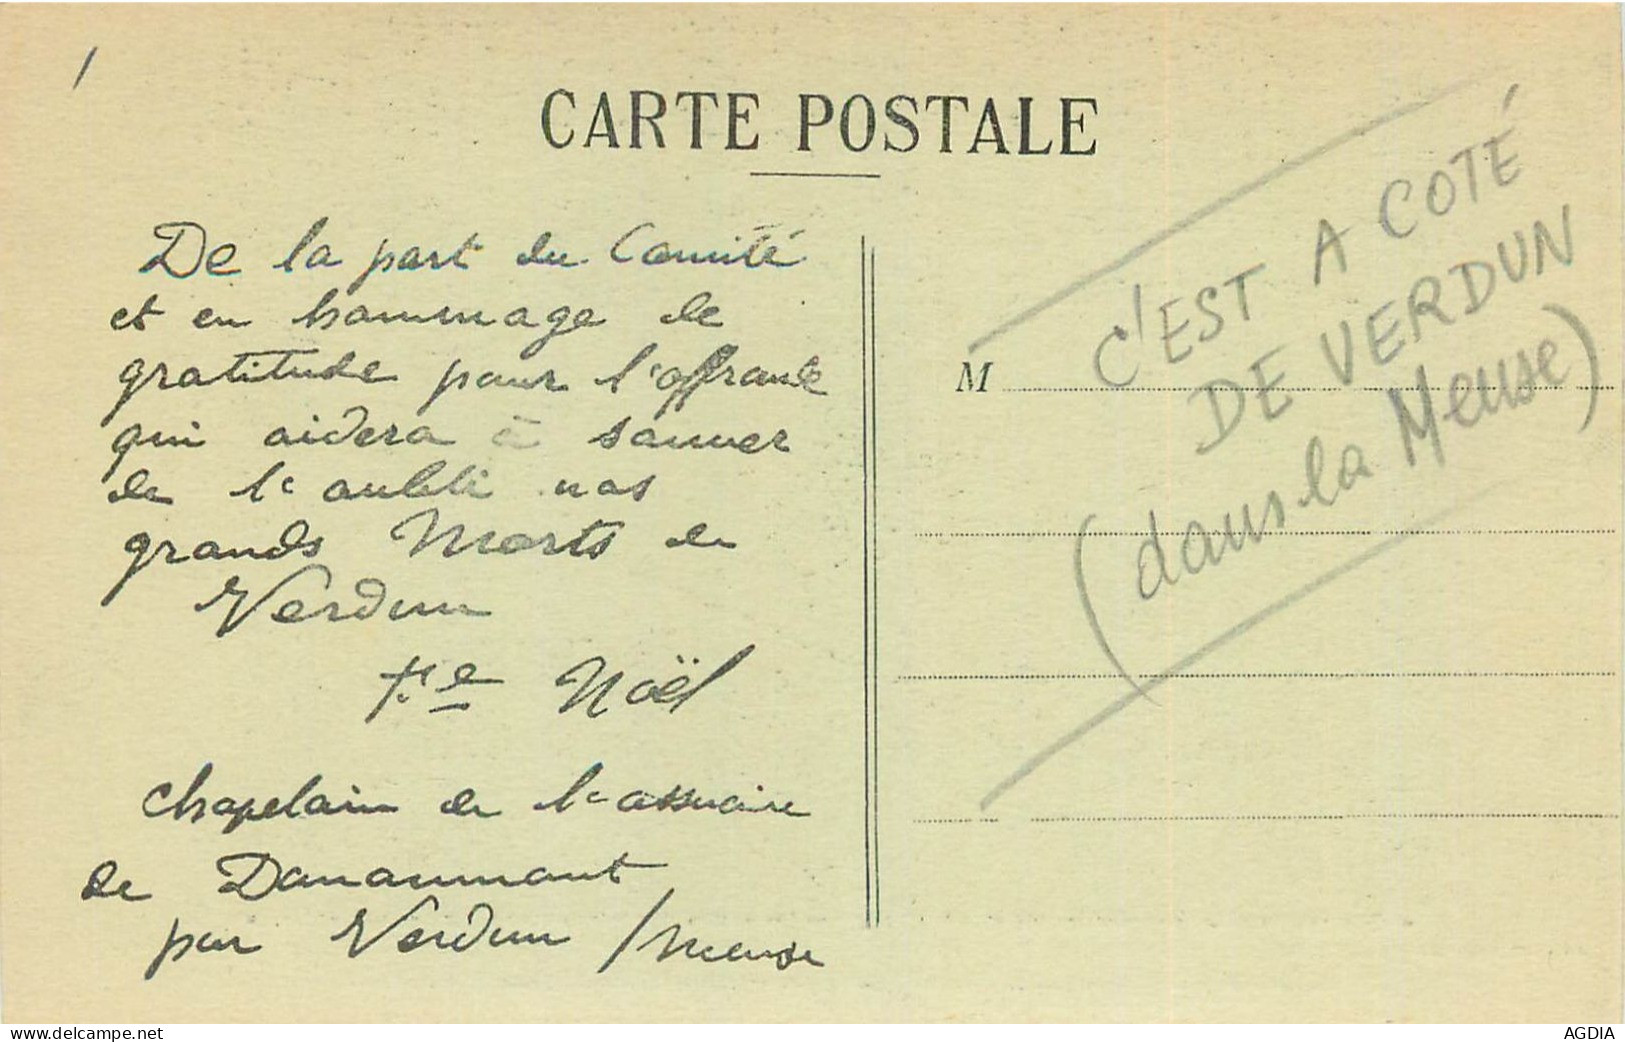 CARTE POSTALE
De la part du Comité
et en hommage de
gratitude pour l'offrande
qui aidera à sauver
de l'oubli nos
grands Morts de
Verdun
Noël
chapelain de l'ossuaire
de Douaumont
par Verdun / Meuse
M
C'EST A COTÉ
DE VERDUN
(dans la Meuse)
delcampe.net
AGDIA